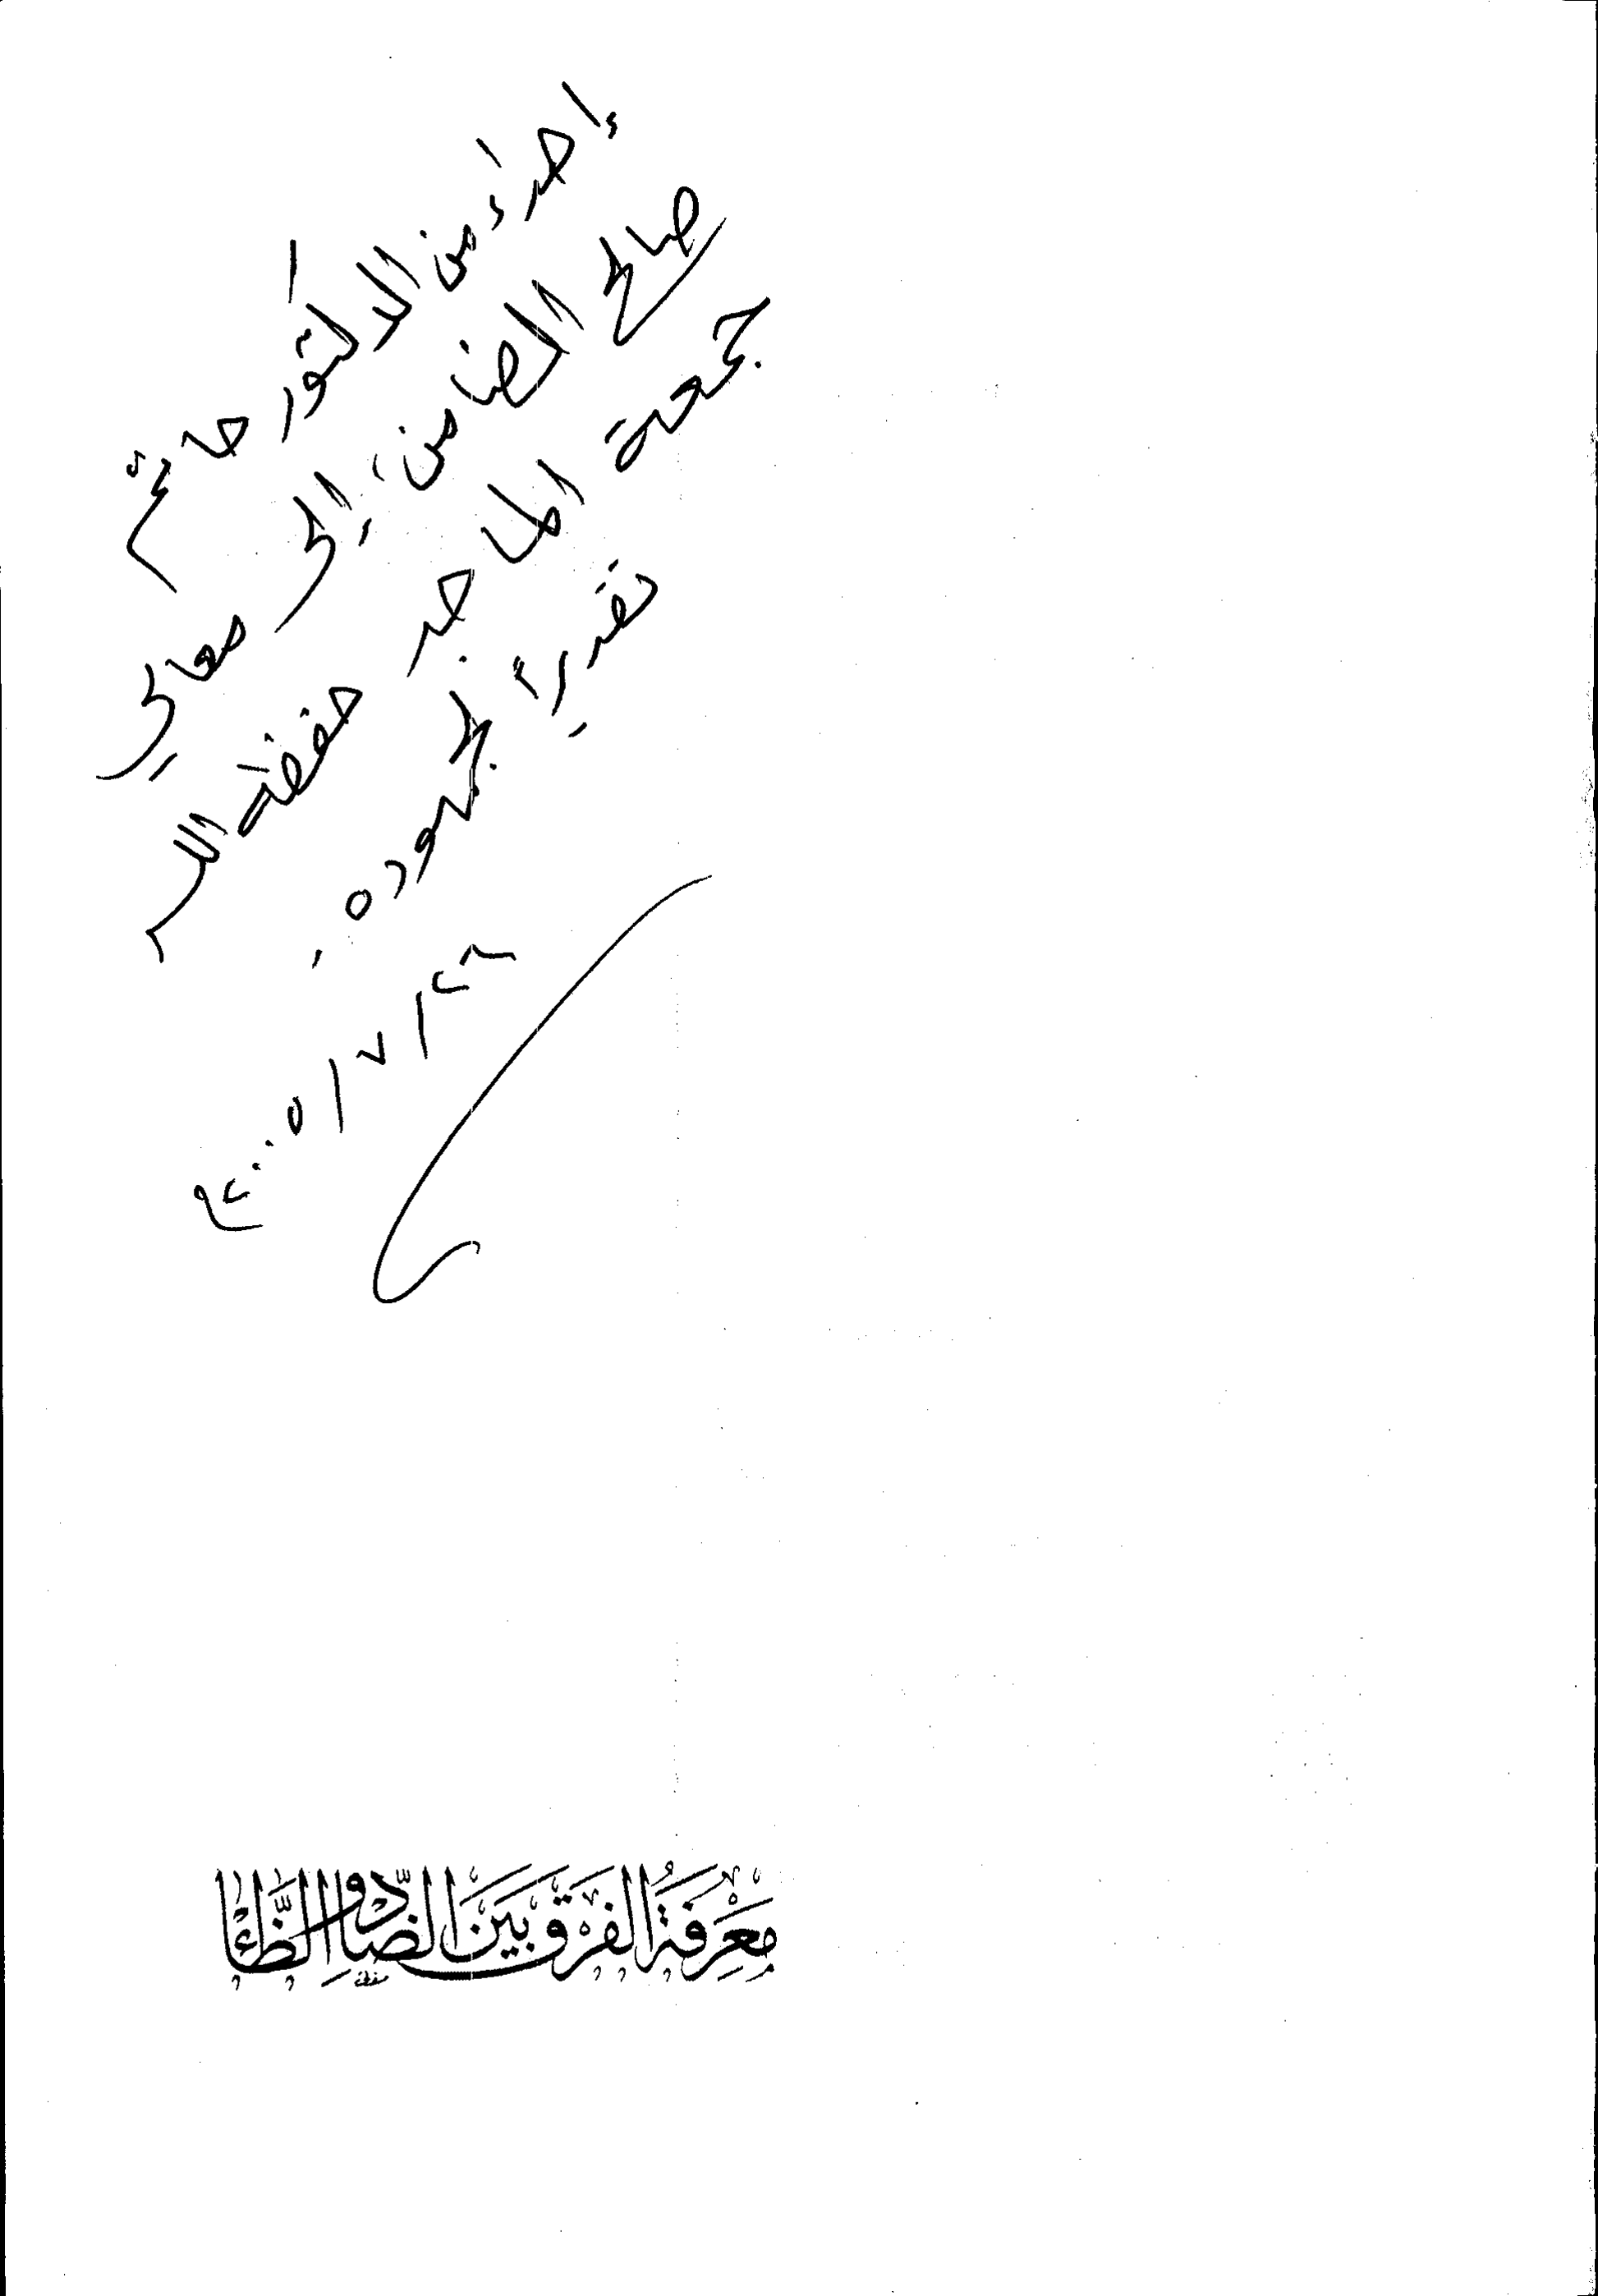 إهداء من الدكتور حاتم
صالح الضامن، إلى معالي
جمعة الماجد حفظه الله
تقديراً لجهوده.
٢٦/٧/٢٠٠٥م
مَعْرِفَةُ الفَرْقِ بَيْنَ الضَّادِ وَالظَّاءِ